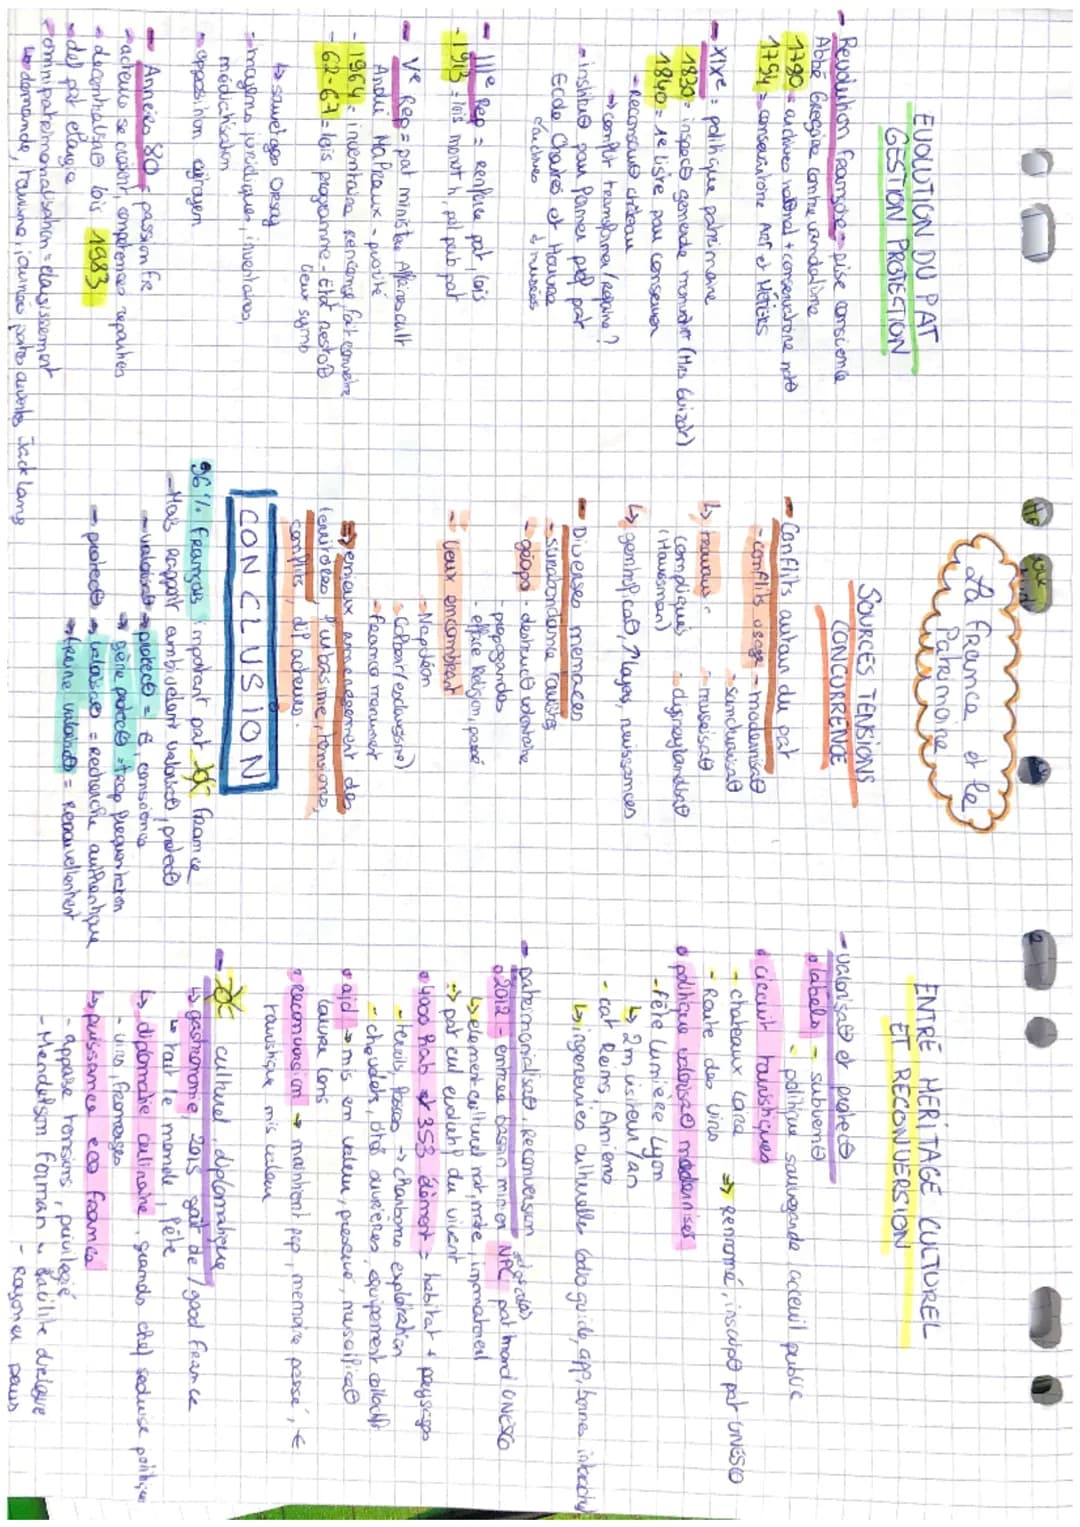 La France et le
Patrimoine
EVOLUTION DU PAT
GESTION PROTECTION
- Révolution française = prise conscience
Abbé Grégoire contre vandalisme
1790 = archives national + conservatoire nat⊖
1794 = conservatoire Art et Métiers
- XIXe = politique patrimoine
1830 = inspect⊖ générale monument (Mrs Guizot)
1840 = 1e liste par conserver
- Reconstruire château
→ conflit transformer/refaire ?
- institu⊖ pour former prof pat
Ecole Chartes et Louvre
d'archives d'musées
- IIIe Rep = renforce pat, lois
- 1913 = lois monst h, pat pub pat
- Ve Rep = pat ministère Affaires cult
André Malraux - priorité
- 1964 = inventaire renommé fait connaître
- 62-67 = lois programme - Etat resto⊖
lieux symb
↳ sauvetage Orsay
- moyens juridiques, inventaires,
médiatisation
- opposition citoyen
- Années 80 = passion Fr
- acteurs se croient, compétences réparties
- décentralisa⊖ lois 1983
- def pat élargie
- omnipatrimonialisation = élargissement
↳ demande, tourisme, journées portes ouvertes Jack Lang
SOURCES TENSIONS
CONCURRENCE
- Conflits autour du pat
- conflits usage - modernisa⊖
- sanctuarisa⊖
↳ travaux - muséisa⊖
compliqués - disneylandisa⊖
(Haussman)
↳ gentrifica⊖, ↗ loyers, nuissances
- Diverses menaces
- surabondance touristes
- géopo - destruct⊖ volontaire
propagandes
- efface Religion, passé
- lieux encombrant
- Napoléon
- Colbert (esclavagisme)
- Franco monument
⇒ enjeux aménagement des
territoires, puissance, tensions,
conflits, dif acteurs.
CONCLUSION
96% Français important pat France
- Mais rapport ambivalent valorisa⊖, protect⊖
- valorisa⊖ → protect⊖ = €, conscience
→ gêne protec⊖ → trop fréquentation
- protect⊖ → valorise = recherche authentique
→ freine valorisa⊖ = renouvellement
ENTRE HÉRITAGE CULTUREL
ET RECONVERSION
- valorisa⊖ et protec⊖
• labels - subvent⊖
- politique sauvegarde, acceuil public
• circuit touristiques
- chateaux Loire
- Route des Vins ⇒ renommé, inscript⊖ pat UNESCO
• politique valorisa⊖ modernisée
- fête Lumière Lyon
↳ 2m visiteur/an
- cat Reims, Amiens
↳ ingénieuries culturelle (audio guide, app, bornes interactiv
- patrimonialisa⊖, reconversion
• 2012 - entrée bassin minier NPC pat mond UNESCO
↳ élément culturel nat, mixte, immatériel
⇒ pat cul évolutif du vivant
• 4000 ha et 353 élément = habitat + paysages
- terrils, fosses → charbons exploitation
- chevalets, cité ouvrières, équipement collectif
• ajd → mis en valeur, préservé, muséifica⊖
Louvre Lens
• reconversion → maintient pop, mémoire passé, €
touristique mis valeur
- culturel, diplomatique
↳ gastronomie, 2015 goût de / good France
→ tout le monde, fête
↳ diplomatie culinaire, grands chef seduise politique
- vins, fromages
↳ puissance eco France
- appaise tensions, privilégié
- Mendelson Forman → facilite dialogue
- Rayonner pays